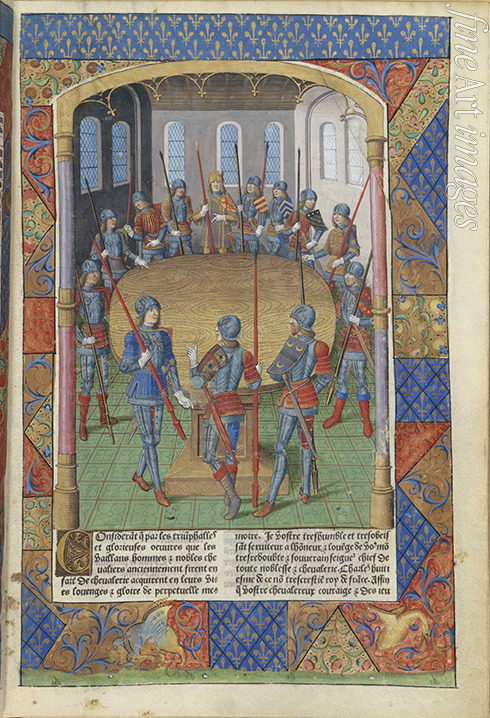 fine Art images
Considerāt q̄ par les triūphalles
et glorieuses oeuures que les
Vaillans hommes z nobles che
ualiers anciennement firent en
fait De cheualerie acquirent en leurs vi
es louenges z gloire de perpetuelle me
moire. Je Vostre treshumble et tresobeis
sāt seruiteur a lhōneur z louēge de
tresredoubte z souuerain seignr̄ chief de
toute noblesse z cheualerie. Charles huiti
esme roy frāce. Affin
q̄ Vostre cheualereux couraige z Des